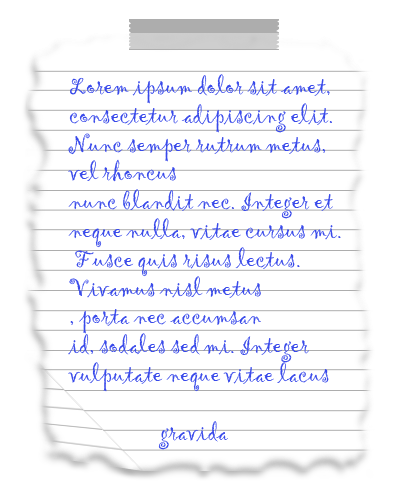 Lorem ipsum dolor sit amet,
consectetur adipiscing elit.
Nunc semper rutrum metus,
vel rhoncus
nunc blandit nec. Integer et
neque nulla, vitae cursus mi.
Fusce quis risus lectus.
Vivamus nisl metus
, porta nec accumsan
id, sodales sed mi. Integer
vulputate neque vitae lacus
gravida